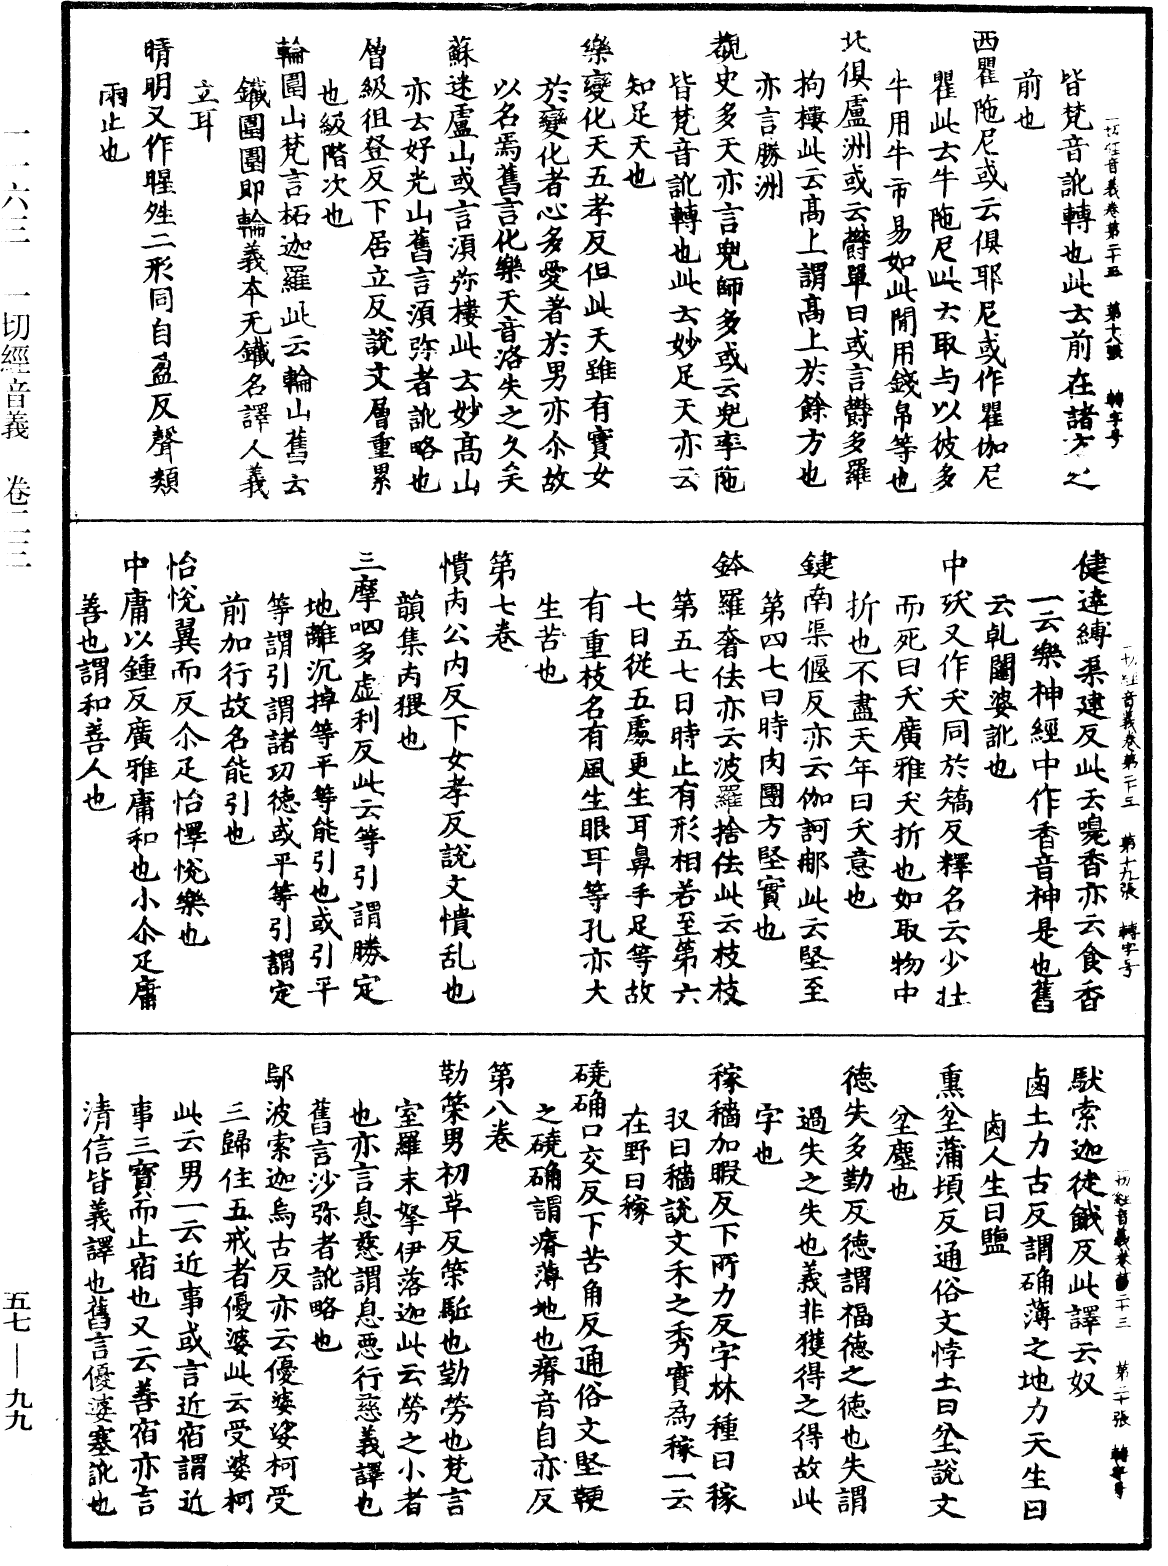 皆梵音訛轉也此云前在諸方之
前也
西瞿陁尼或云俱耶尼或作瞿伽尼
瞿此云牛陁尼此云取与以彼多
牛用牛市易如此閒用錢帛等也
北俱盧洲或云欝單曰或言欝多羅
拘樓此云髙上謂髙上於餘方也
亦言勝洲
覩史多天亦言兜師多或云兜率陁
皆梵音訛轉也此云妙足天亦云
知足天也
樂變化天五孝反但此天雖有寳女
於變化者心多愛著於男亦尒故
以名焉舊言化樂天音洛失之久矣
蘇迷盧山或言須弥樓此云妙髙山
亦云好光山舊言須弥者訛略也
層級徂登反下居立反說文層重累
也級階次也
輪圍山梵言柘迦羅此云輪山舊云
鐵圍圍即輪義本无鐵名譯人義
立耳
晴明又作暒殅二形同自盈反聲類
雨止也
一切經音義卷第二十三 第十八張 轉字号
健達縛渠建反此云嗅香亦云食香
一云樂神經中作香音神是也舊
云乹闥婆訛也
中殀又作夭同於矯反釋名云少壯
而死曰夭廣雅夭折也如取物中
折也不盡天年曰夭意也
鍵南渠偃反亦云伽訶郍此云堅至
第四七曰時肉團方堅實也
鉢羅奢佉亦云波羅捨佉此云枝枝
第五七日時止有形相若至第六
七日從五處更生耳鼻手足等故
有重枝名有風生眼耳等孔亦大
生苦也
第七卷
憒丙公內反下女孝反說文憒乱也
韻集丙猥也
三摩呬多虚利反此云等引謂勝定
地離沉掉等平等能引也或引平
等謂引謂諸功德或平等引謂定
前加行故名能引也
怡悅翼而反尒疋怡懌悅樂也
中庸以鍾反廣雅庸和也小尒疋庸
善也謂和善人也
一切經音義卷第二十三 第十九張 轉字号
馱索迦徒餓反此譯云奴
鹵土力古反謂确薄之地力天生曰
鹵人生曰鹽
熏坌蒲頓反通俗文悖土曰坌說文
坌塵也
德失多勤反德謂福德之德也失謂
過失之失也義非獲得之得故此
字也
稼穡加暇反下所力反字林種曰稼
収曰穡說文禾之秀實為稼一云
在野曰稼
磽确口交反下苦角反通俗文堅鞕
之磽确謂瘠薄地也瘠音自亦反
第八卷
勒策男初草反策駈也勤勞也梵言
室羅末拏伊落迦此云勞之小者
也亦言息慈謂息惡行慈義譯也
舊言沙弥者訛略也
鄔波索迦烏古反亦云優婆娑柯受
三歸住五戒者優婆此云受婆柯
此云男一云近事或言近宿謂近
事三寳而止宿也又云善宿亦言
清信皆義譯也舊言優婆塞訛也
一切經音義卷第二十三 第二十張 轉字号
一一六三 一切經音義 卷二三
五七——九九